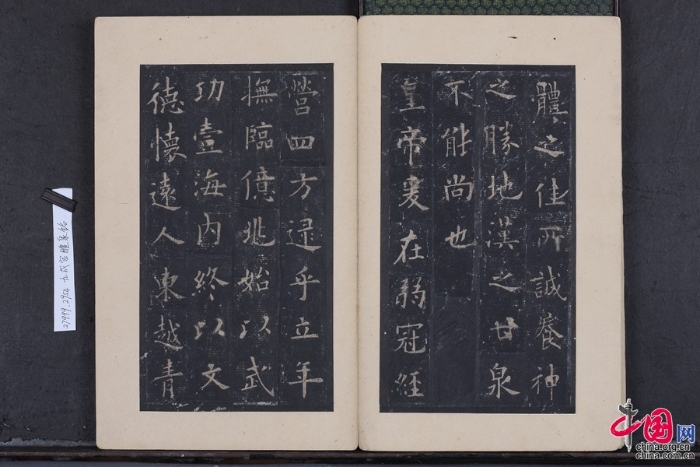 體之佳所誠養神
之勝地漢之甘泉
不能尚也
皇帝爰在弱冠經
營四方逮乎立年
撫臨億兆始以武
功壹海内終以文
德懷遠人東越青
九成宮醴泉銘
中国网
china.org.cn
china.com.cn